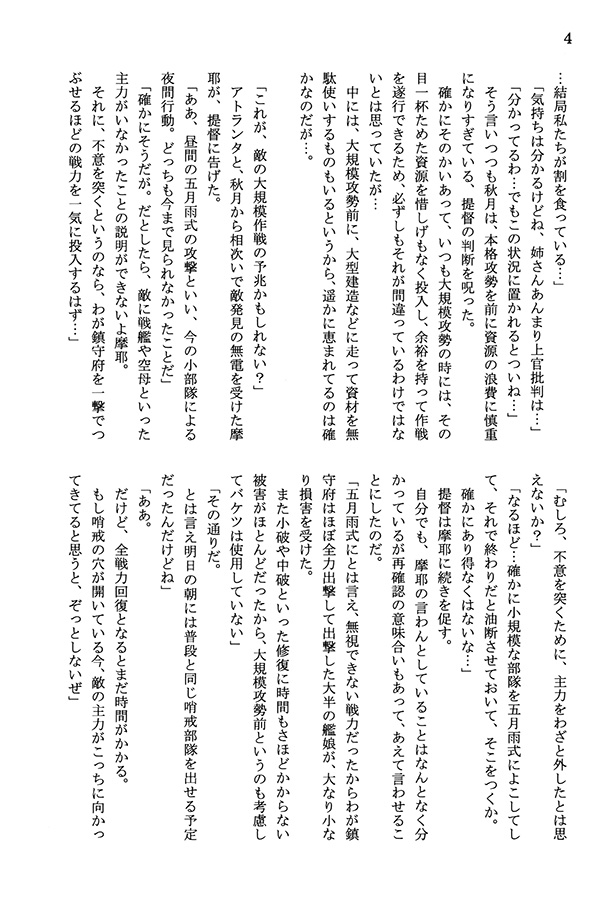 4
…結局私たちが割を食っている…」
「気持ちは分かるけどね、姉さんあんまり上官批判は…」
「分かってるわ…でもこの状況に置かれるとついね…」
そう言いつつも秋月は、本格攻勢を前に資源の浪費に慎重
になりすぎている、提督の判断を呪った。
確かにそのかいあって、いつも大規模攻勢の時には、その
目一杯ためた資源を惜しげもなく投入し、余裕を持って作戦
を遂行できるため、必ずしもそれが間違っているわけではな
いとは思っていたが…
中には、大規模攻勢前に、大型建造などに走って資材を無
駄使いするものもいるというから、遥かに恵まれてるのは確
かなのだが…。
「これが、敵の大規模作戦の予兆かもしれない？」
アトランタと、秋月から相次いで敵発見の無電を受けた摩
耶が、提督に告げた。
「ああ、昼間の五月雨式の攻撃といい、今の小部隊による
夜間行動。どっちも今まで見られなかったことだ」
「確かにそうだが。だとしたら、敵に戦艦や空母といった
主力がいなかったことの説明ができないよ摩耶。
それに、不意を突くというのなら、わが鎮守府を一撃でつ
ぶせるほどの戦力を一気に投入するはず…」
「むしろ、不意を突くために、主力をわざと外したとは思
えないか？」
「なるほど…確かに小規模な部隊を五月雨式によこしてし
て、それで終わりだと油断させておいて、そこをつくか。
確かにあり得なくはないな…」
提督は摩耶に続きを促す。
自分でも、摩耶の言わんとしていることはなんとなく分
かっているが再確認の意味合いもあって、あえて言わせるこ
とにしたのだ。
「五月雨式にとは言え、無視できない戦力だったからわが鎮
守府はほぼ全力出撃して出撃した大半の艦娘が、大なり小な
り損害を受けた。
また小破や中破といった修復に時間もさほどかからない
被害がほとんどだったから、大規模攻勢前というのも考慮し
てバケツは使用していない」
「その通りだ。
とは言え明日の朝には普段と同じ哨戒部隊を出せる予定
だったんだけどね」
「ああ。
だけど、全戦力回復となるとまだ時間がかかる。
もし哨戒の穴が開いている今、敵の主力がこっちに向かっ
てきてると思うと、ぞっとしないぜ」